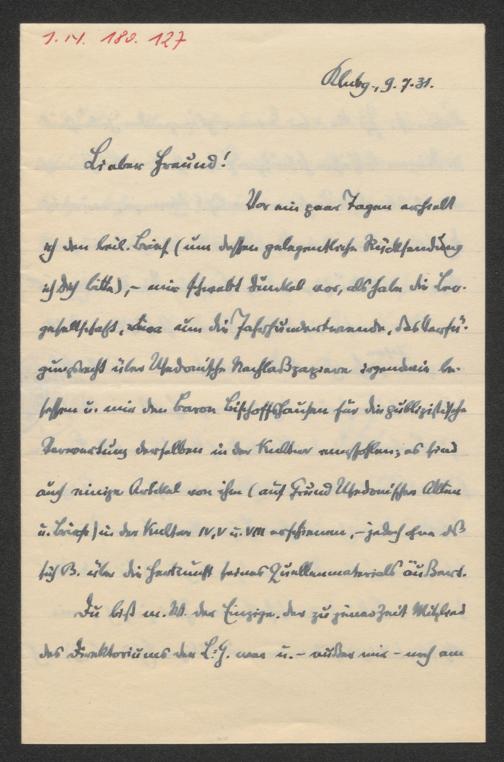 1. 14. 180. 127
Klubg., 9.7.31.
Lieber Freund!
Vor ein paar Tagen erhielt
ich den beil. Brief (um dessen gelegentliche Rücksendung
ich Dich bitte), – mir schwebt dunkel vor, als habe die Leo-
gesellschaft, etwa um die Jahrhundertwende, das Verfü-
gungsrecht über Usedomische Nachlaßpapiere irgendwie be-
sessen u. mir den Baron Bischoffshausen für die publizistische
Verwertung derselben in der Kultur empfohlen; es sind
auch einige Artikel von ihm (auf Grund Usedomischer Akten
u. Briefe) in der Kultur IV, V u. VIII erschienen, – jedoch ohne daß
sich B. über die Herkunft seines Quellenmaterials äußert.
Du bist m. W. der Einzige, der zu jener Zeit Mitglied
des Direktoriums der L.-G. war u. – außer mir – noch am